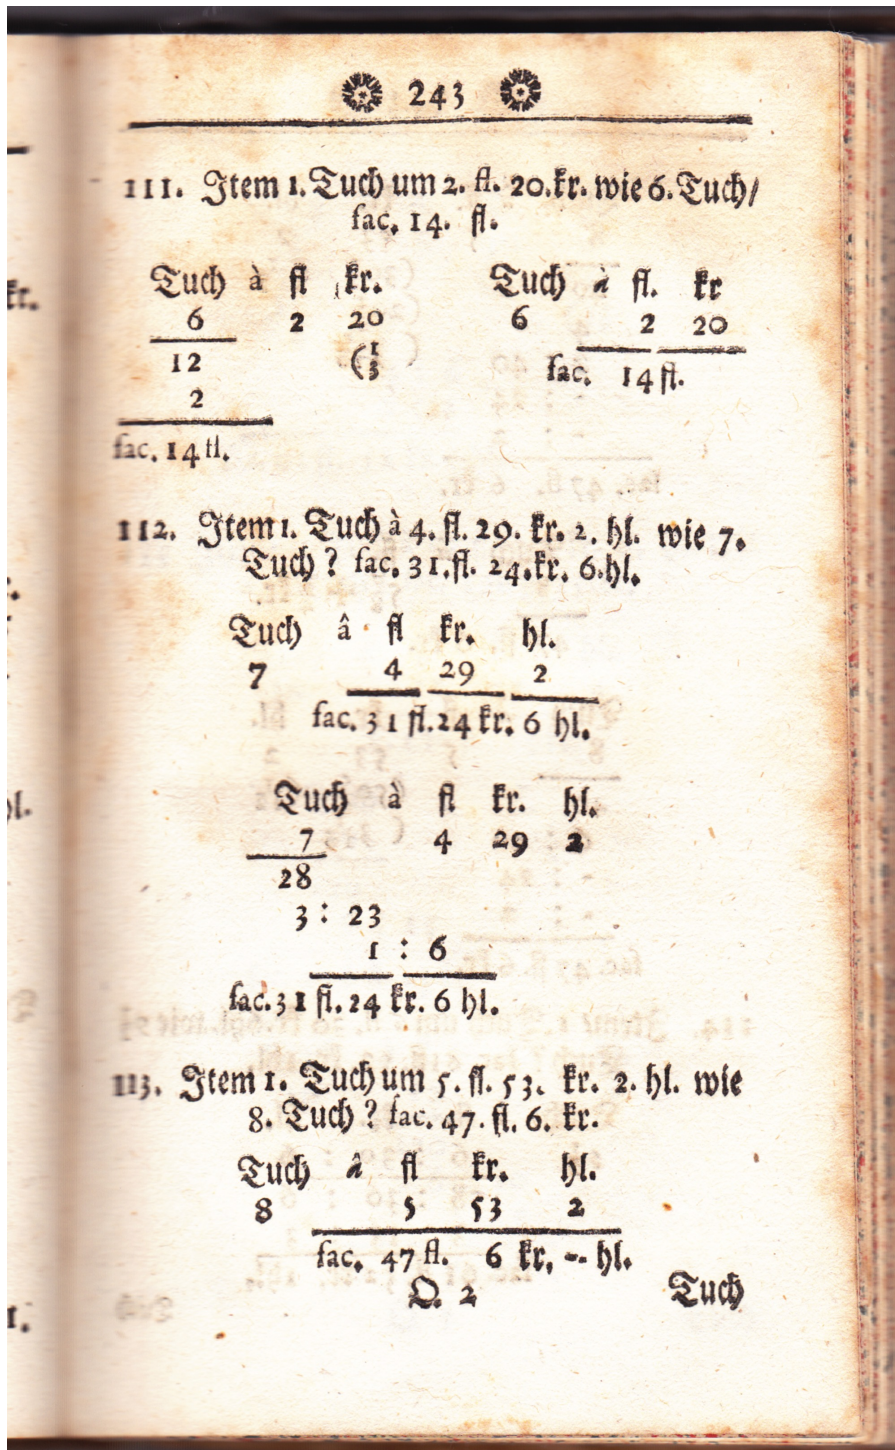 243
111. Item 1. Tuch um 2. fl. 20. kr. wie 6. Tuch/
fac. 14. fl.
Tuch à fl kr.
6 2 20
12 (1/3
2
fac. 14 fl.
Tuch à fl. kr
6 2 20
fac. 14 fl.
112. Item 1. Tuch à 4. fl. 29. kr. 2. hl. wie 7.
Tuch ? fac. 31. fl. 24. kr. 6. hl.
Tuch â fl kr. hl.
7 4 29 2
fac. 31 fl. 24 kr. 6 hl.
Tuch à fl kr. hl.
7 4 29 2
28
3 : 23
1 : 6
fac. 31 fl. 24 kr. 6 hl.
113. Item 1. Tuch um 5. fl. 53. kr. 2. hl. wie
8. Tuch ? fac. 47. fl. 6. kr.
Tuch â fl kr. hl.
8 5 53 2
fac. 47 fl. 6 kr. -- hl.
Q. 2 Tuch